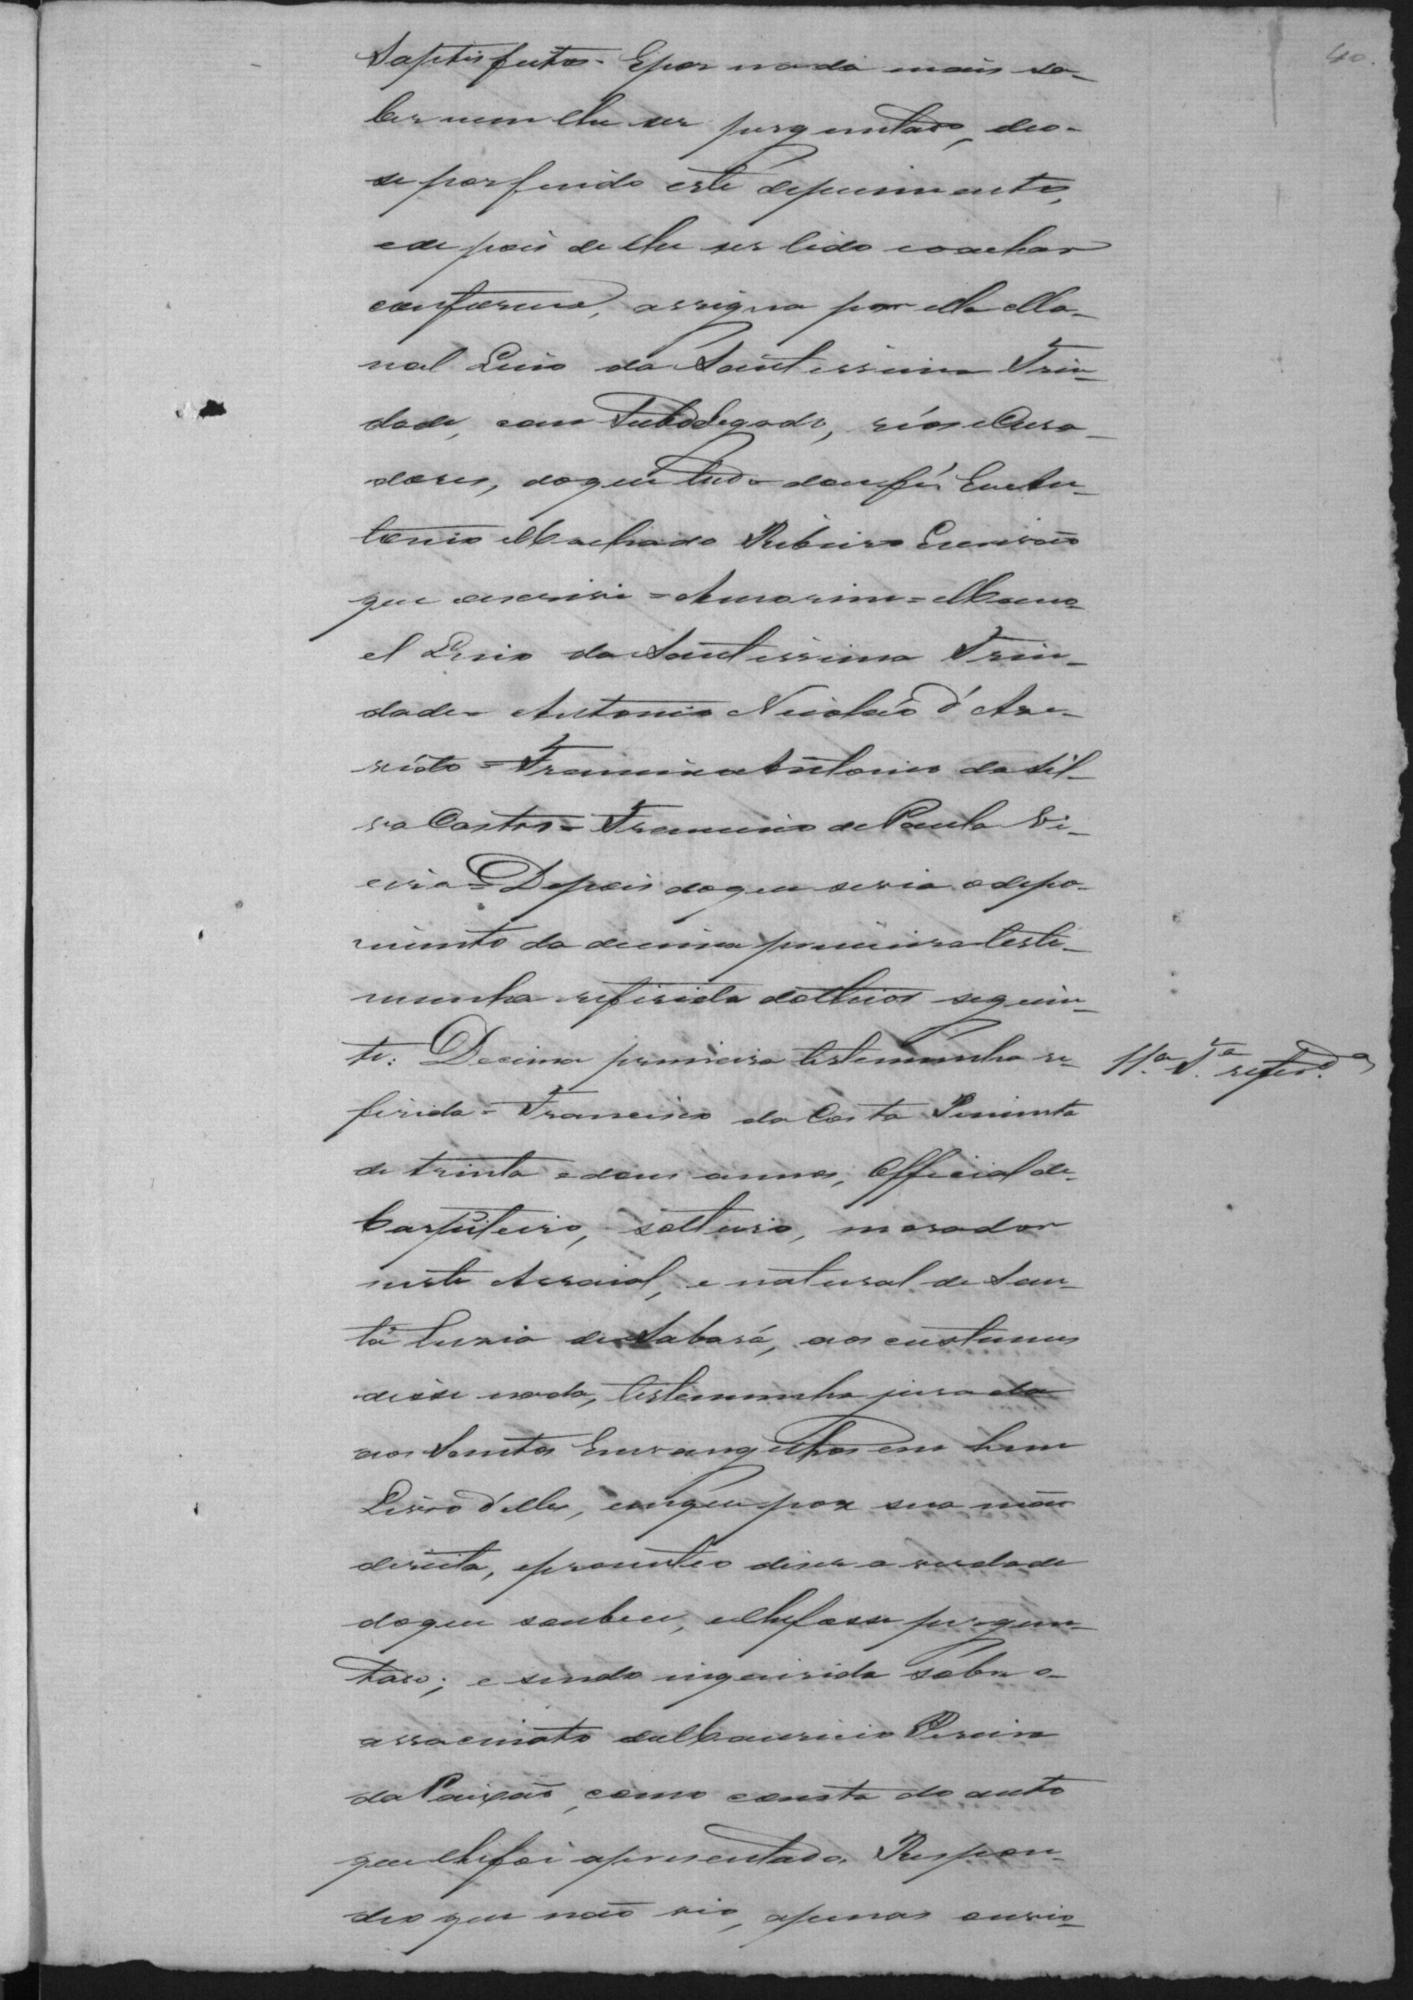 40.
Saptisfeitos. E por nada mais sa-
ber nem lhe ser perguntado, deo-
se por findo este depuimento,
e depois de lhe ser lido e o achar
conforme, assigna por ella Ma-
noel Luis da Santissima Trin-
dade, com Subdelegado, réos e Cura-
dores, do que tudo dou fé. Eu An-
tonio Machado Ribeiro Escrivão
que escrivi = Amorim = Mano-
el Luis da Santissima Trin-
dade = Antonio Nicoláo d'Aze-
vêdo = Francisco Antonio da Sil-
va Castro = Francisco de Paula Vi-
eira = Depois do que se via o depo-
imento da decima primeira teste-
munha referida do theor seguin-
te: Decima primeira testemunha re-
11.a T.a referd.a
ferida = Francisco da Costa Pimenta
de trinta e dous annos, Official de
Carpiteiro, solteiro, morador
neste Arraial, e natural de San-
ta Luzia de Sabará, aos custumes
disse nada, testemunha jurada
aos Santos Envangelhos em hum
Livro d'elles, em que poz sua mão
direita, e prometteo dizer a verdade
do que soubece, e lhe fosse pergun-
tado; e sendo inquirida sobre o
assacinato de Mauricio Pereira
da Paixão, como consta do auto
que lhe foi apresentado. Respon-
deo que não vio, apenas ouvio